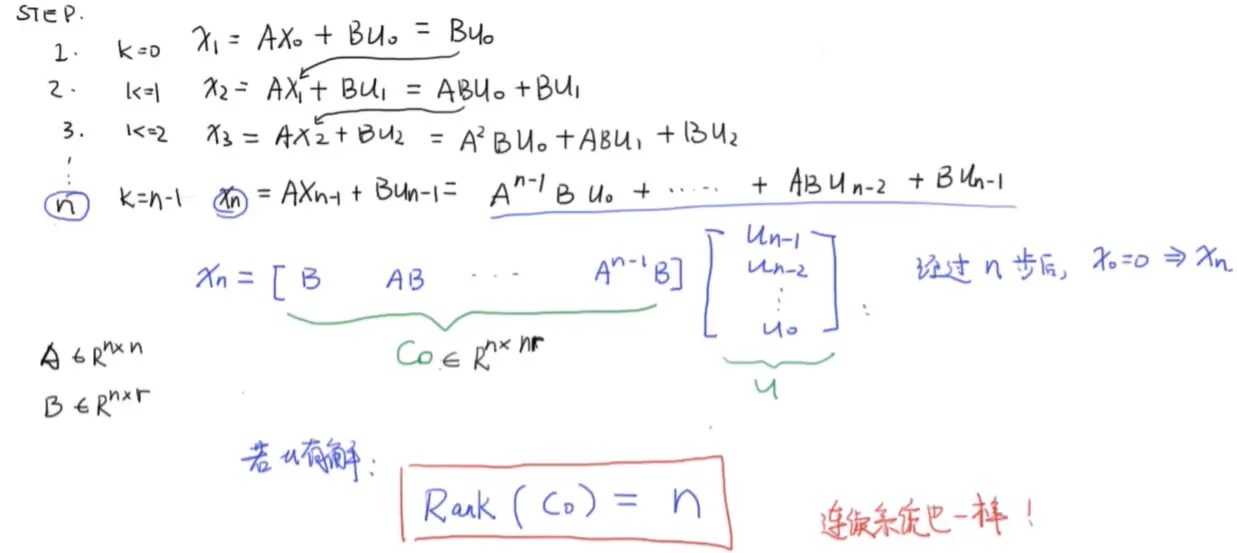 STEP.
1. k=0 x₁ = Ax₀ + Bu₀ = Bu₀
2. k=1 x₂ = Ax₁ + Bu₁ = ABu₀ + Bu₁
3. k=2 x₃ = Ax₂ + Bu₂ = A²Bu₀ + ABu₁ + Bu₂
⋮
n k=n-1 xₙ = Axₙ₋₁ + Buₙ₋₁ = Aⁿ⁻¹Bu₀ + ····· + ABuₙ₋₂ + Buₙ₋₁
xₙ = [B AB ··· Aⁿ⁻¹B] [uₙ₋₁ uₙ₋₂ ⋮ u₀] 经过 n 步后, x₀=0 ⇒ xₙ
Co ∈ Rⁿˣⁿʳ
u
A ∈ Rⁿˣⁿ
B ∈ Rⁿˣʳ
若 u 有解:
Rank (Co) = n
连续系统也一样!